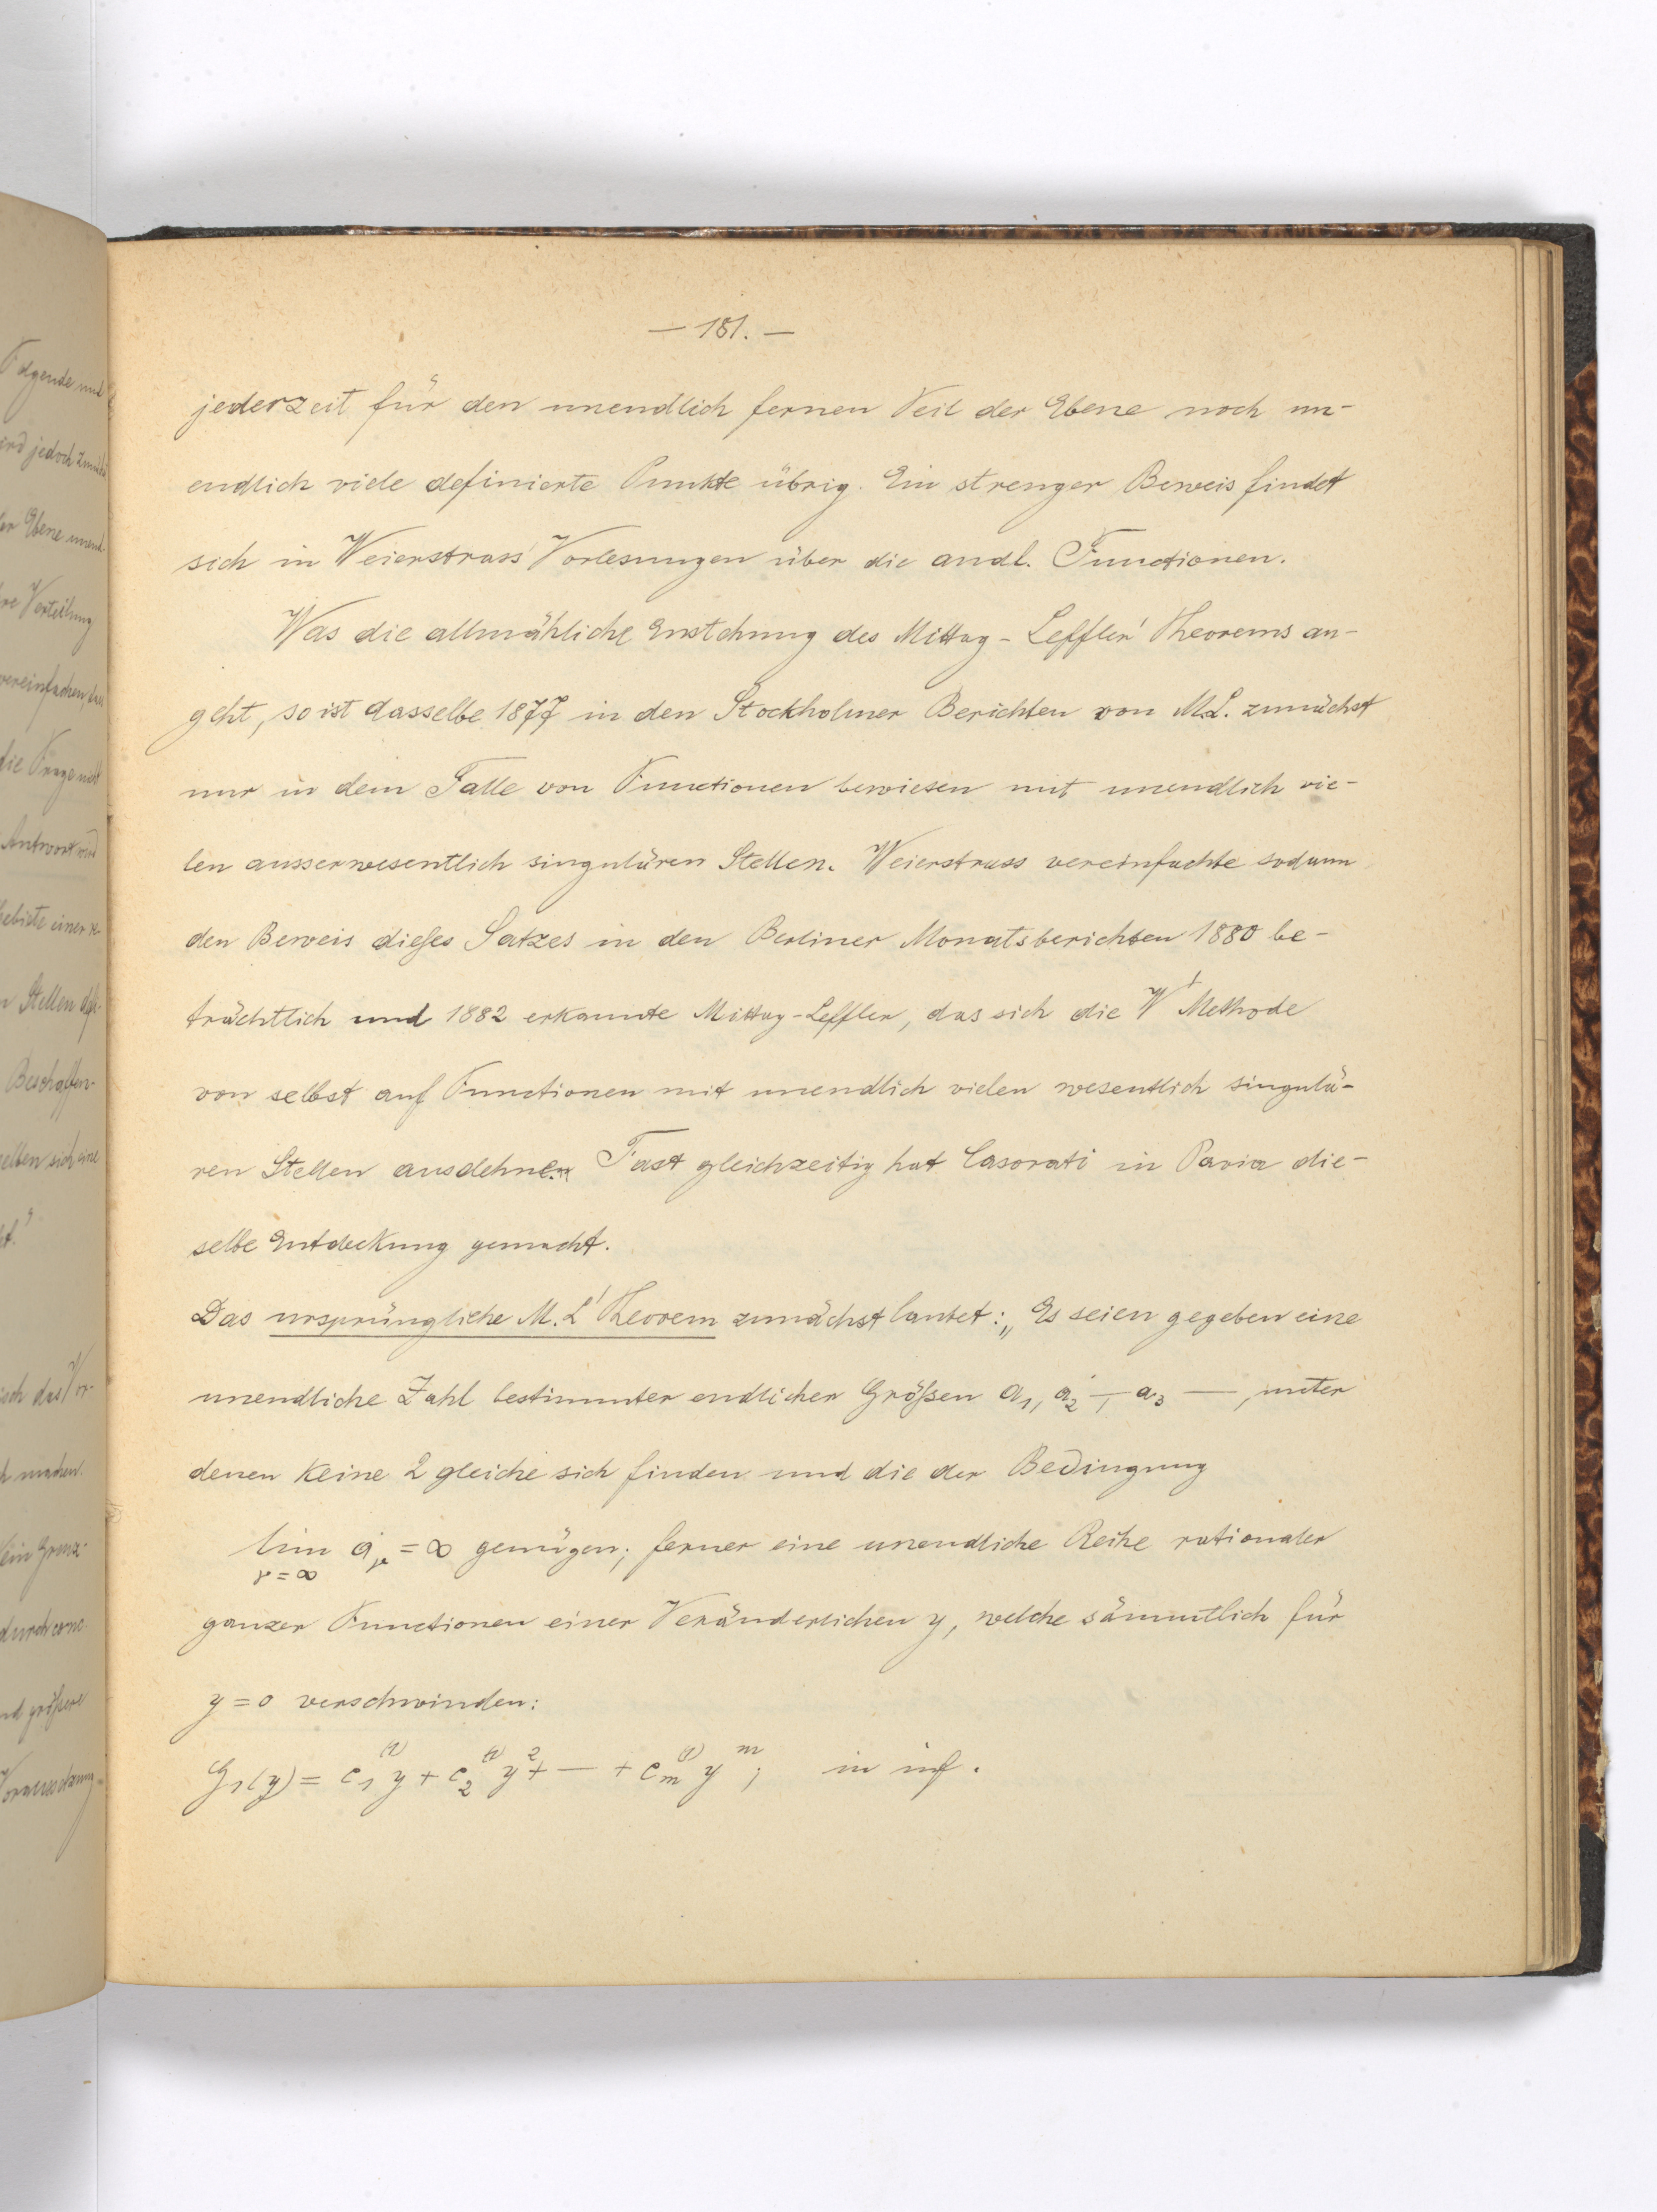 — 181. —
jederzeit für den unendlich fernen Teil der Ebene noch un-
endlich viele definierte Punkte übrig. Ein strenger Beweis findet
sich in Weierstrass' Vorlesungen über die andl. Functionen.
Was die allmähliche Enstehung des Mittag-Leffler' Theorems an-
geht, so ist dasselbe 1877 in den Stockholmer Berichten von M.L. zunächst
nur in dem Falle von Functionen bewiesen mit unendlich vie-
len ausserwesentlich singulären Stellen. Weierstrass vereinfachte sodann
den Beweis dieses Satzes in den Berliner Monatsberichten 1880 be-
trächtlich und 1882 erkannte Mittag-Leffler, das sich die W' Methode
von selbst auf Functionen mit unendlich vielen wesentlich singulä-
ren Stellen ausdehne. Fast gleichzeitig hat Casorati in Pavia die-
selbe Entdeckung gemacht.
Das ursprüngliche M. L' Theorem zunächst lautet: „Es seien gegeben eine
unendliche Zahl bestimmter endlicher Größen a₁, a₂ —, a₃ —, unter
denen keine 2 gleiche sich finden und die der Bedingung
lim a_ν = ∞ genügen; ferner eine unendliche Reihe rationaler
ν = ∞
ganzer Functionen einer Veränderlichen y, welche sämmtlich für
y = 0 verschwinden:
G₁(y) = c₁⁽¹⁾ y + c₂⁽¹⁾ y² + — + c_m⁽¹⁾ y^m ; in inf.